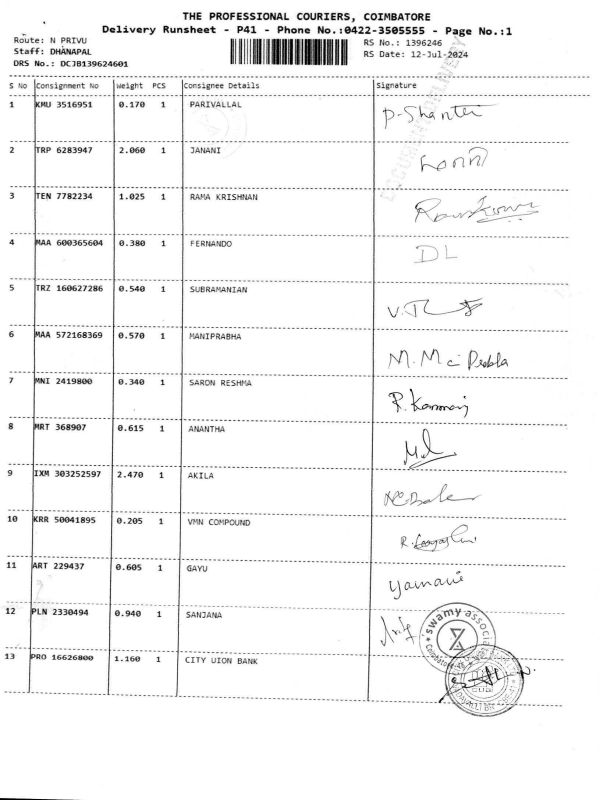 THE PROFESSIONAL COURIERS, COIMBATORE
Delivery Runsheet - P41 - Phone No.:0422-3505555 - Page No.:1
Route: N PRIVU RS No.: 1396246
Staff: DHANAPAL RS Date: 12-Jul-2024
DRS No.: DCJB139624601
S No Consignment No Weight PCS Consignee Details Signature
1 KMU 3516951 0.170 1 PARIVALLAL P-Shanthi
2 TRP 6283947 2.060 1 JANANI
3 TEN 7782234 1.025 1 RAMA KRISHNAN
4 MAA 600365604 0.380 1 FERNANDO DL
5 TRZ 160627286 0.540 1 SUBRAMANIAN
6 MAA 572168369 0.570 1 MANIPRABHA
7 MNI 2419800 0.340 1 SARON RESHMA
8 MRT 368907 0.615 1 ANANTHA
9 IXM 303252597 2.470 1 AKILA
10 KRR 50041895 0.205 1 VMN COMPOUND
11 ART 229437 0.605 1 GAYU
12 PLN 2330494 0.940 1 SANJANA
swamy associ
13 PRO 16626800 1.160 1 CITY UION BANK
CUB